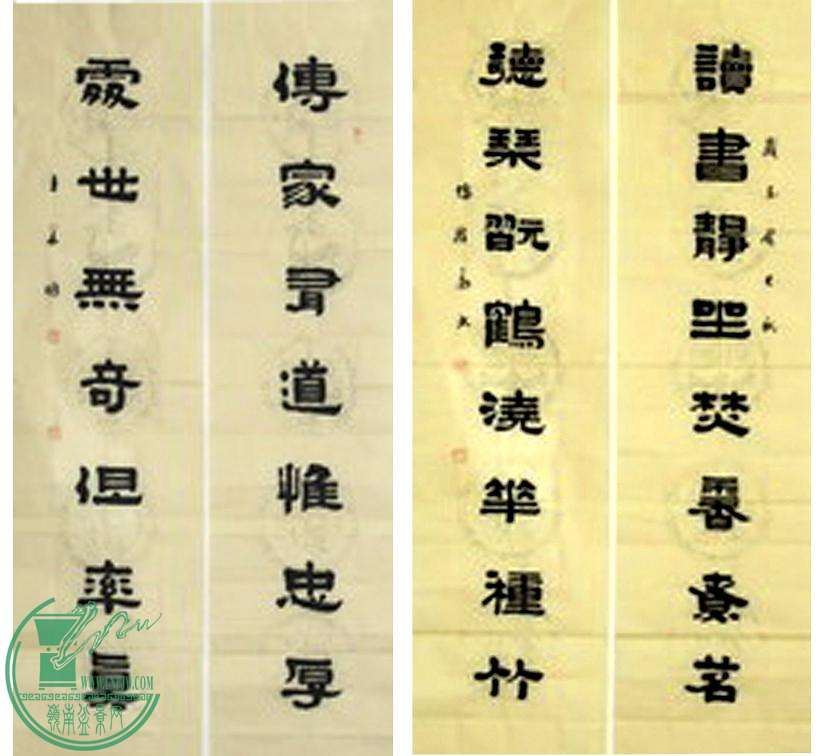 讀書靜坐焚香煮茗
聽琴翫鶴澆華種竹
傳家有道惟忠厚
處世無奇但率真
嶺南盆景网